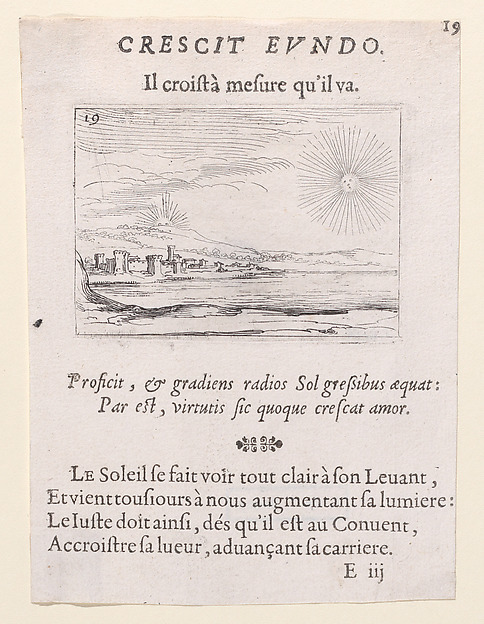 19
CRESCIT EVNDO.
Il croiſtà meſure qu'il va.
19
Proficit, & gradiens radios Sol greßibus æquat:
Par eſt, virtutis ſic quoque creſcat amor.
LE Soleil ſe fait voir tout clair à ſon Leuant,
Et vient touſiours à nous augmentant ſa lumiere:
Le Iuſte doit ainſi, dés qu'il eſt au Conuent,
Accroiſtre ſa lueur, aduançant ſa carriere.
E iij